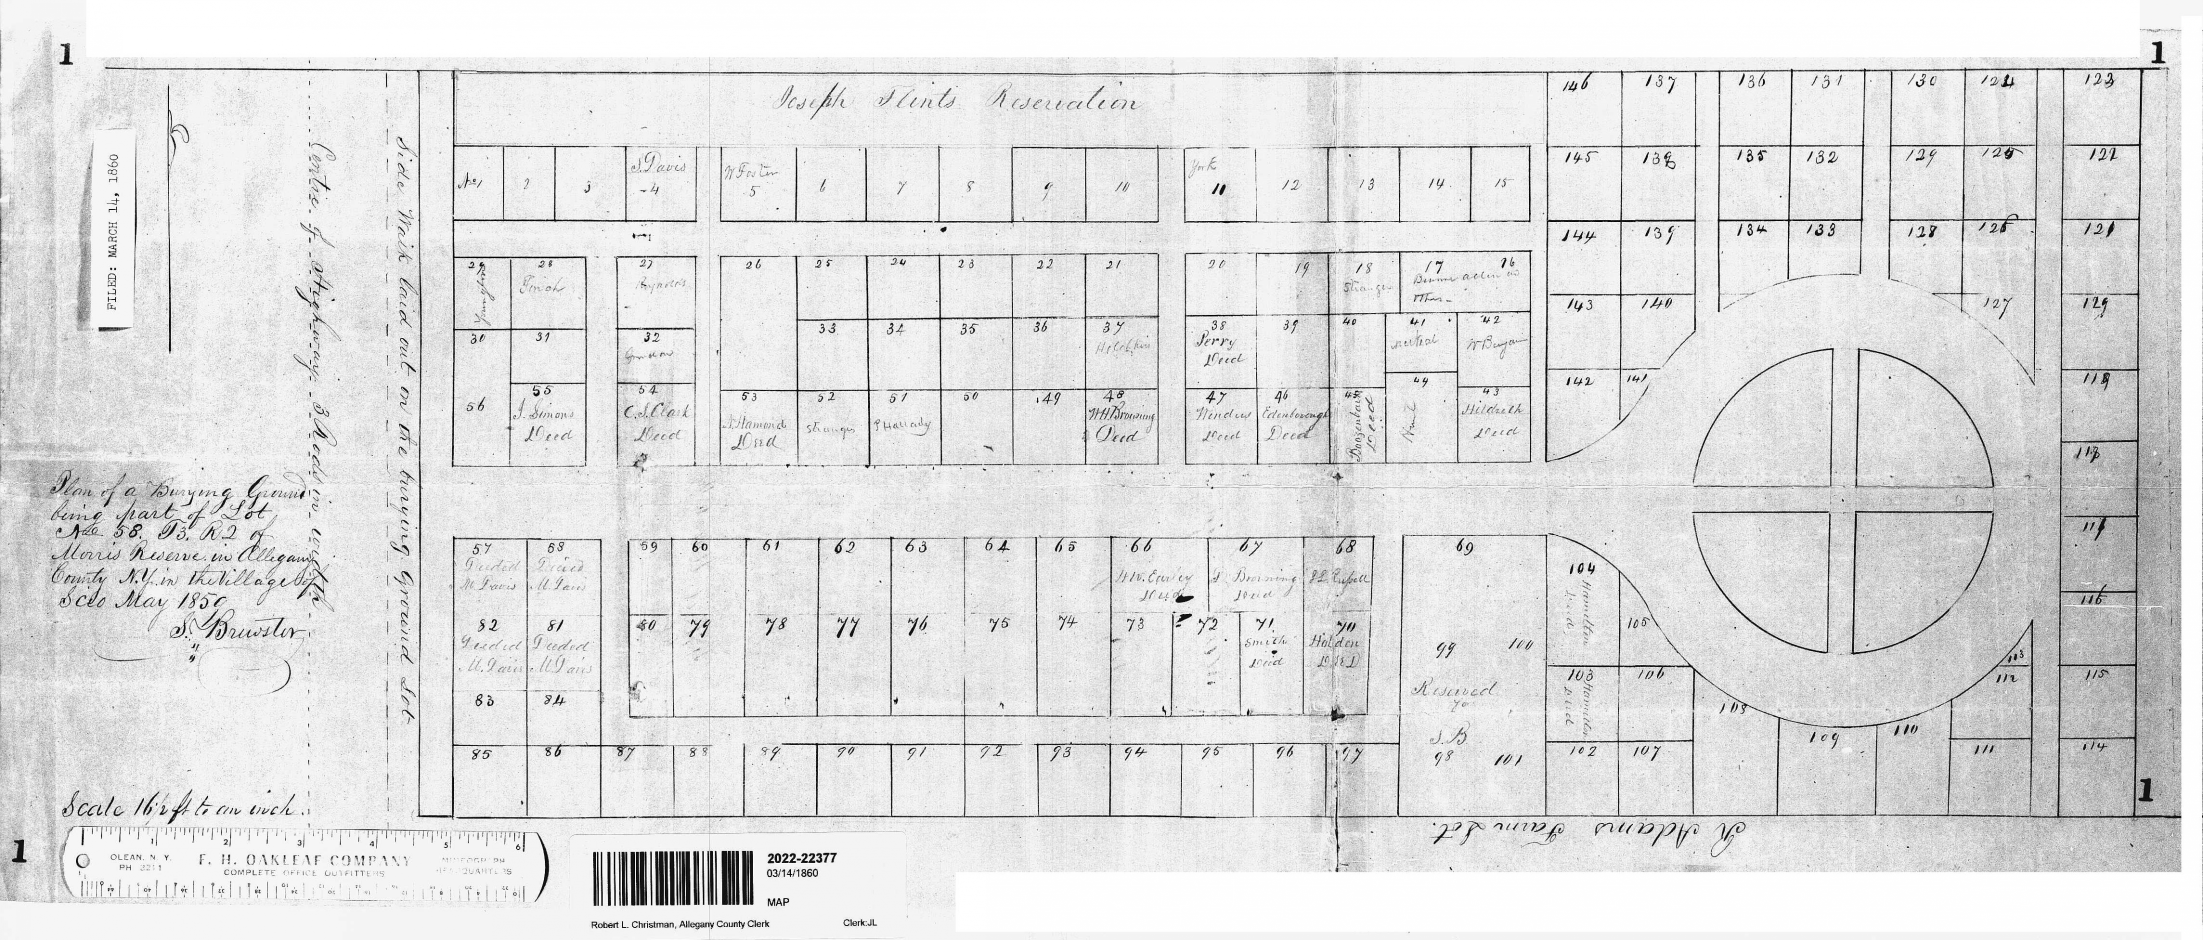 1
1
FILED: MARCH 14, 1860
Centre of Highway 3 Rods in width
Side Walk laid out on the burying Ground Lot
Joseph Flints Reservation
Plan of a Burying Ground
being part of Lot
No 58. T3. R2 of
Morris Reserve in Allegany
County N.Y. in the Village of
Scio May 1859
S. Brewster
Scale 16½ ft to an inch.
No 1 2 3 S. Davis 4
W Foster 5 6 7 8 9 10
York 11 12 13 14 15
29 28
27 Reynolds
26 25 24 23 22 21
20 19 18 Stranger 17 16
30 31
32
33 34 35 36 37
38 Perry Deed 39 40 41 42
56 55 J. Simons Deed
54 C. S. Clark Deed
53 Hamond Deed 52 Stranger 51 50 49 48 W H Browning Deed
47 Deed 46 Edenborough Deed Deed 44 43 Hildreth Deed
57 Deeded M. Davis 58 Deeded M. Davis
59 60 61 62 63 64 65 66 Deed 67 Browning Deed 68
69
82 Deeded M. Davis 81 Deeded M. Davis
80 79 78 77 76 75 74 73 72 71 Smith Deed 70 Holden Deed
83 84
85 86 87 88 89 90 91 92 93 94 95 96 97
99 100
Reserved
for
S. B
98 101
146 137 136 131 130 124 123
145 138 135 132 129 125 122
144 139 134 133 128 126 121
143 140 127 120
142 141 119
118
117
104 Hamilton Deed 116
105
103 Hamilton Deed 106 113 112 115
108 109 110
102 107 111 114
R Adams Farm Lot.
1
1
OLEAN, N. Y.
PH 2211
F. H. OAKLEAF COMPANY
COMPLETE OFFICE OUTFITTERS
MIMEOGRAPH
HEADQUARTERS
1 2 3 4 5 6
2022-22377
03/14/1860
MAP
Robert L. Christman, Allegany County Clerk Clerk:JL